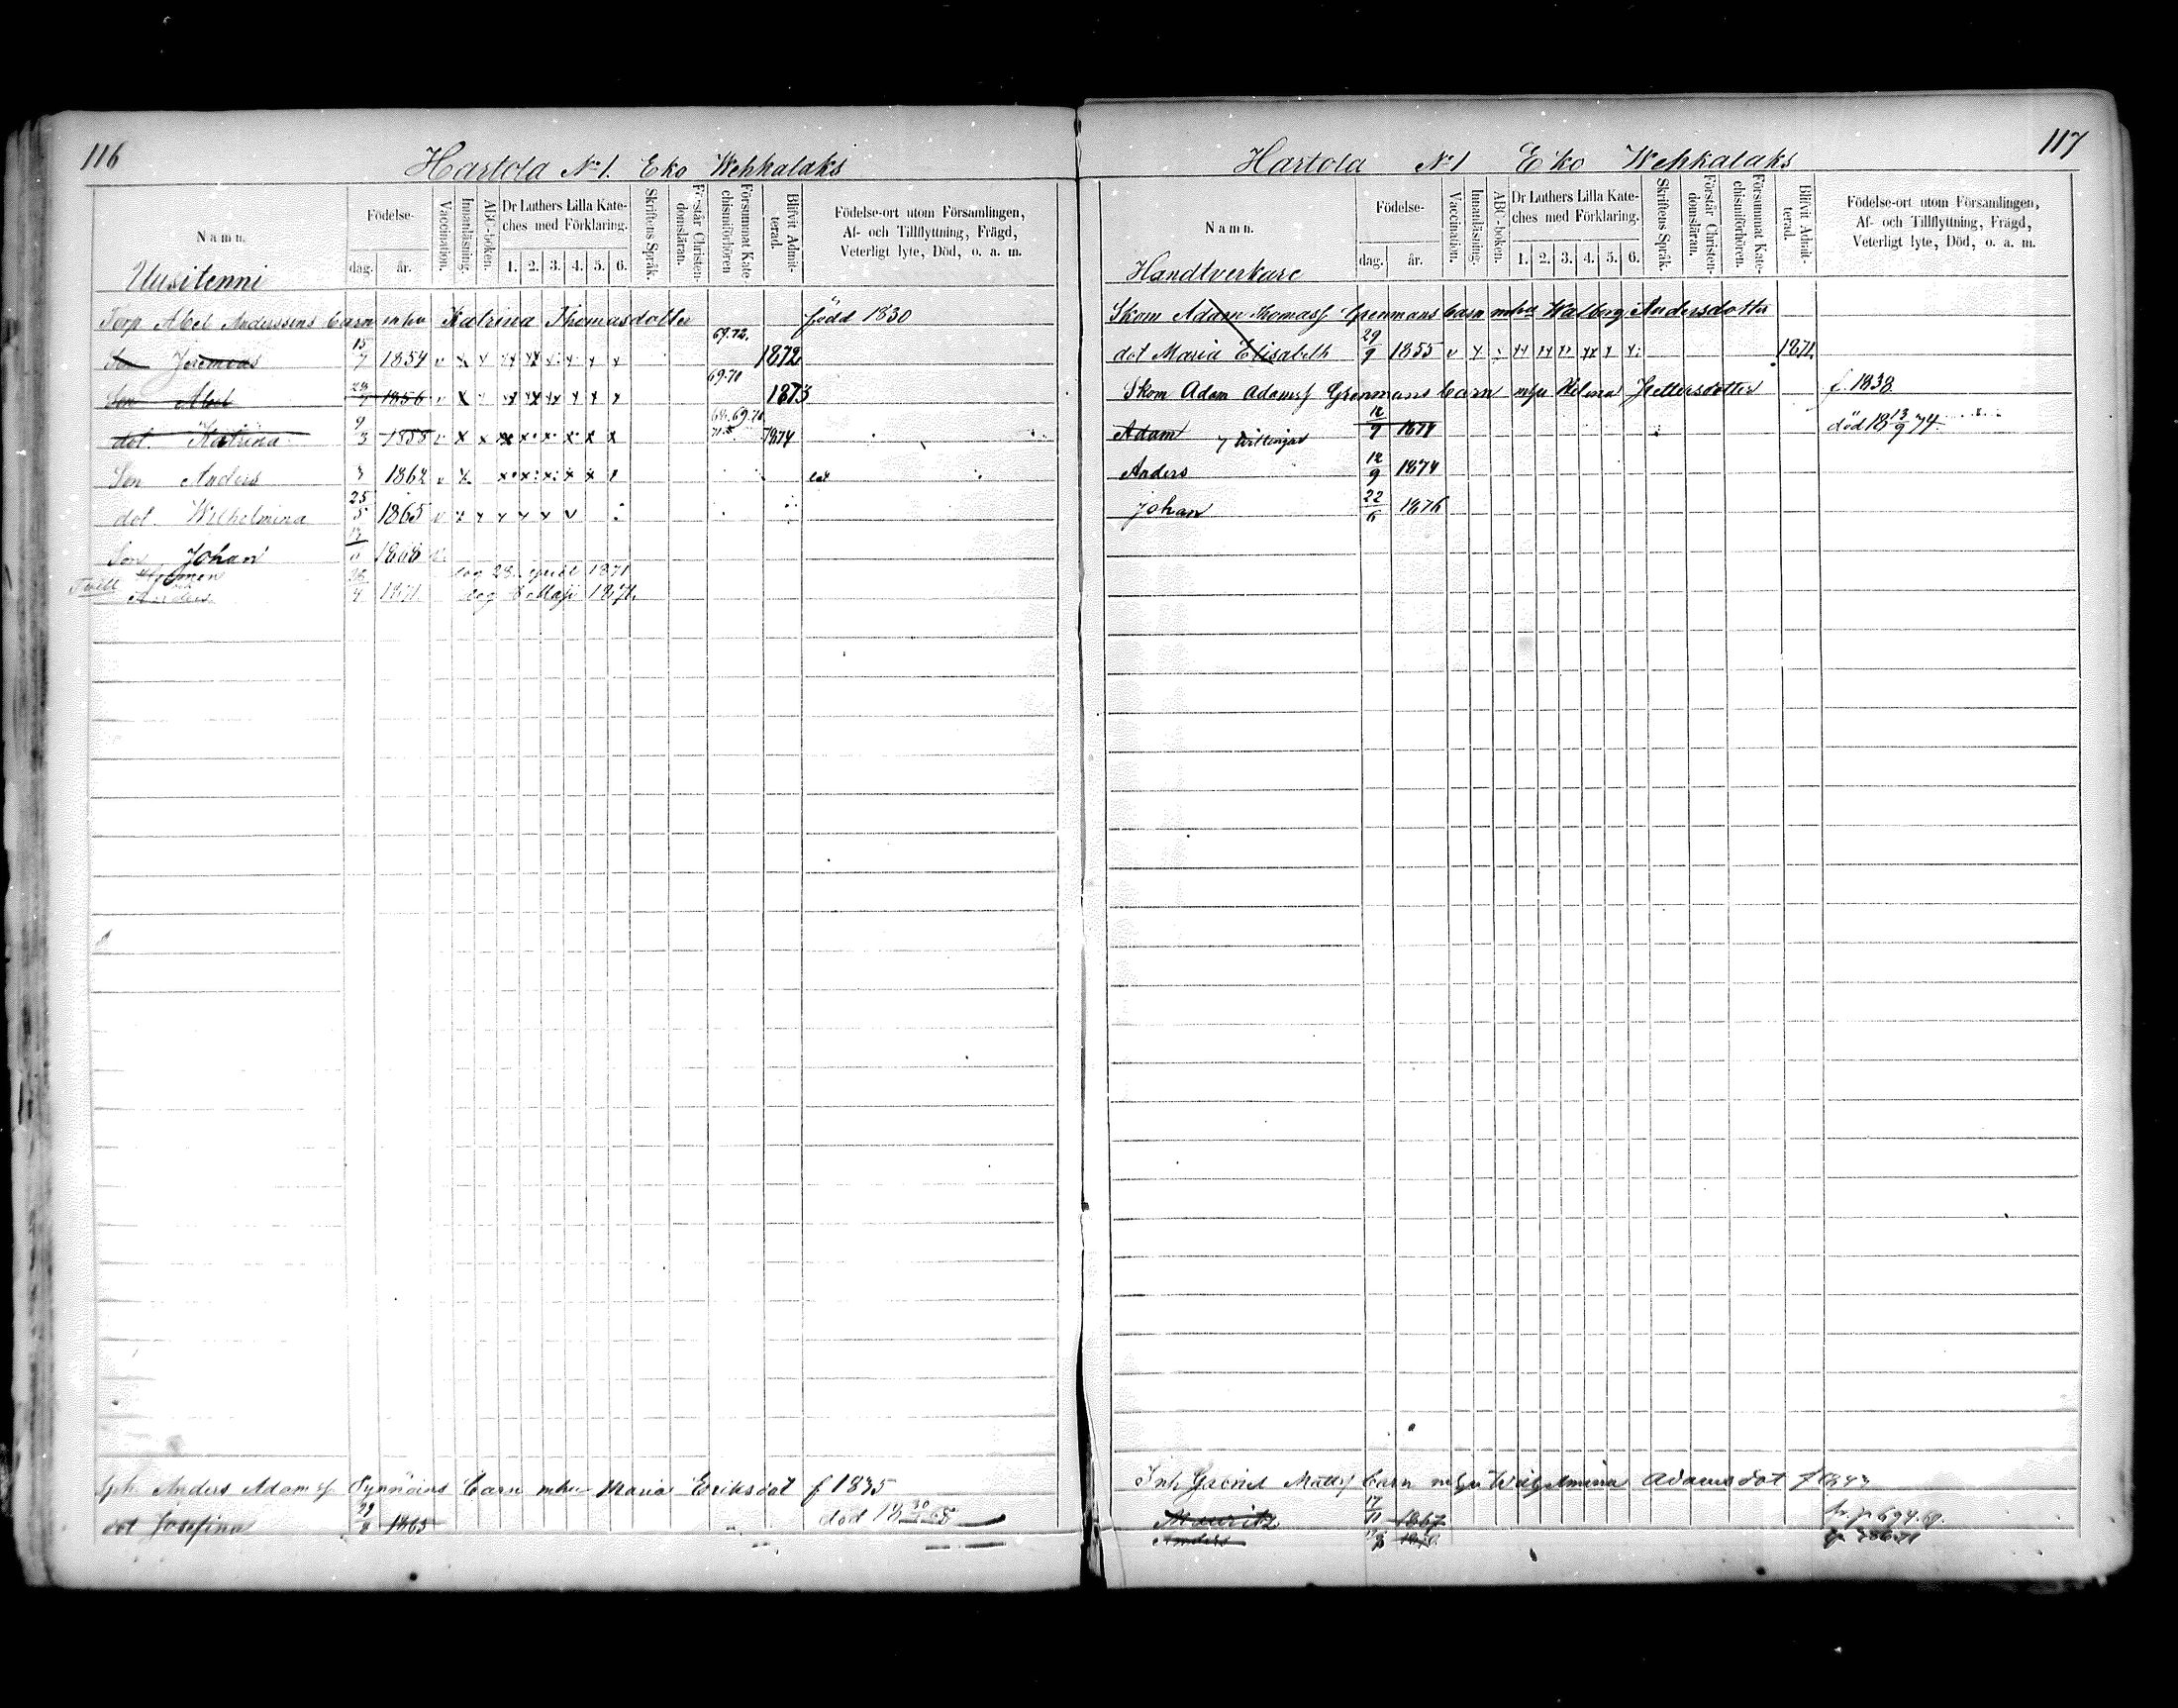 116
Hartola No 1. Eko Wehkalaks
Namn.
Födelse-
dag.
år.
Vaccination.
Innanläsning.
ABC-boken.
Dr Luthers Lilla Kate-
ches med Förklaring.
1. 2. 3. 4. 5. 6.
Skriftens Språk.
Förstår Christen-
domsläran.
Försummat Kate-
chismiförhören
Blifvit Admit-
terad.
Födelse-ort utom Församlingen,
Af- och Tillflyttning, Frägd,
Veterligt lyte, Död, o. a. m.
Uusitenni
Torp Abel Anderssons barn m hu Katrina Thomasdotter född 1830
Son Jeremias 15/7 1854 v x 69.72. 1872
Son Abel 1856 v x 69.71 1873
dot. Katrina 9/3 1858 v x x 68.69.70 1874
Son Anders 1862 v x
dot. Wilhelmina 25/5 1865 v x x x x x v
Son Johan 1868
Tvill
28/4 1871 dog 28 april 1871
Anders dog 8 Maji 1871.
Anders Adamss Pynnöins barn m hu Maria Eriksdot f 1835
dot Josefina 1865 död 18 30 68
117
Hartola No 1 Eko Wehkalaks
Namn.
Födelse-
dag.
år.
Vaccination.
Innanläsning.
ABC-boken.
Dr Luthers Lilla Kate-
ches med Förklaring.
1. 2. 3. 4. 5. 6.
Skriftens Språk.
Förstår Christen-
domsläran.
Försummat Kate-
chismiförhören.
Blifvit Admit-
terad.
Födelse-ort utom Församlingen,
Af- och Tillflyttning, Frägd,
Veterligt lyte, Död, o. a. m.
Handtverkare
Skom Adam Thomass Grenmans barn m hu Walborg Andersdotter
dot Maria Elisabeth 29/9 1855 v x 1871.
Skom Adam Adamss Grenmans barn m hu Helena Pettersdotter f. 1838
Adam 12/9 1874 död 18 13/9 74.
Tvillingar
Anders 12/9 1874
Johan 22/6 1876
Inh Gabriel Matts barn m hu Wilhelmina Adamsdot
Mauritz 17/11 1867 p 694.69.
Anders